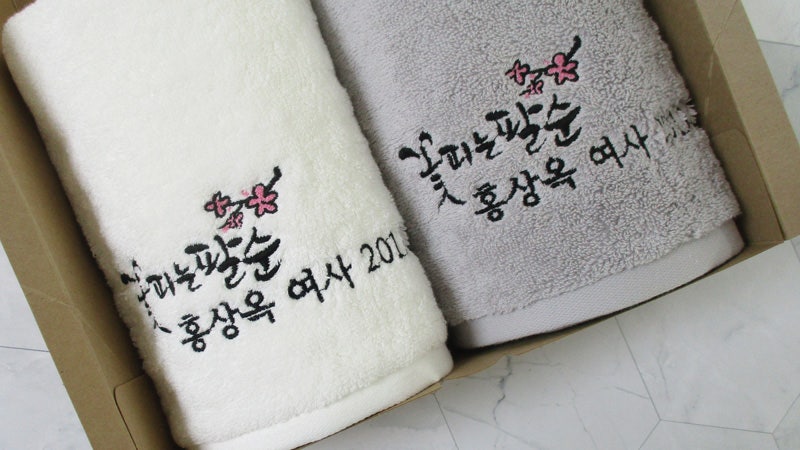 꽃피는팔순
홍상옥 여사 201
꽃피는팔순
홍상옥 여사